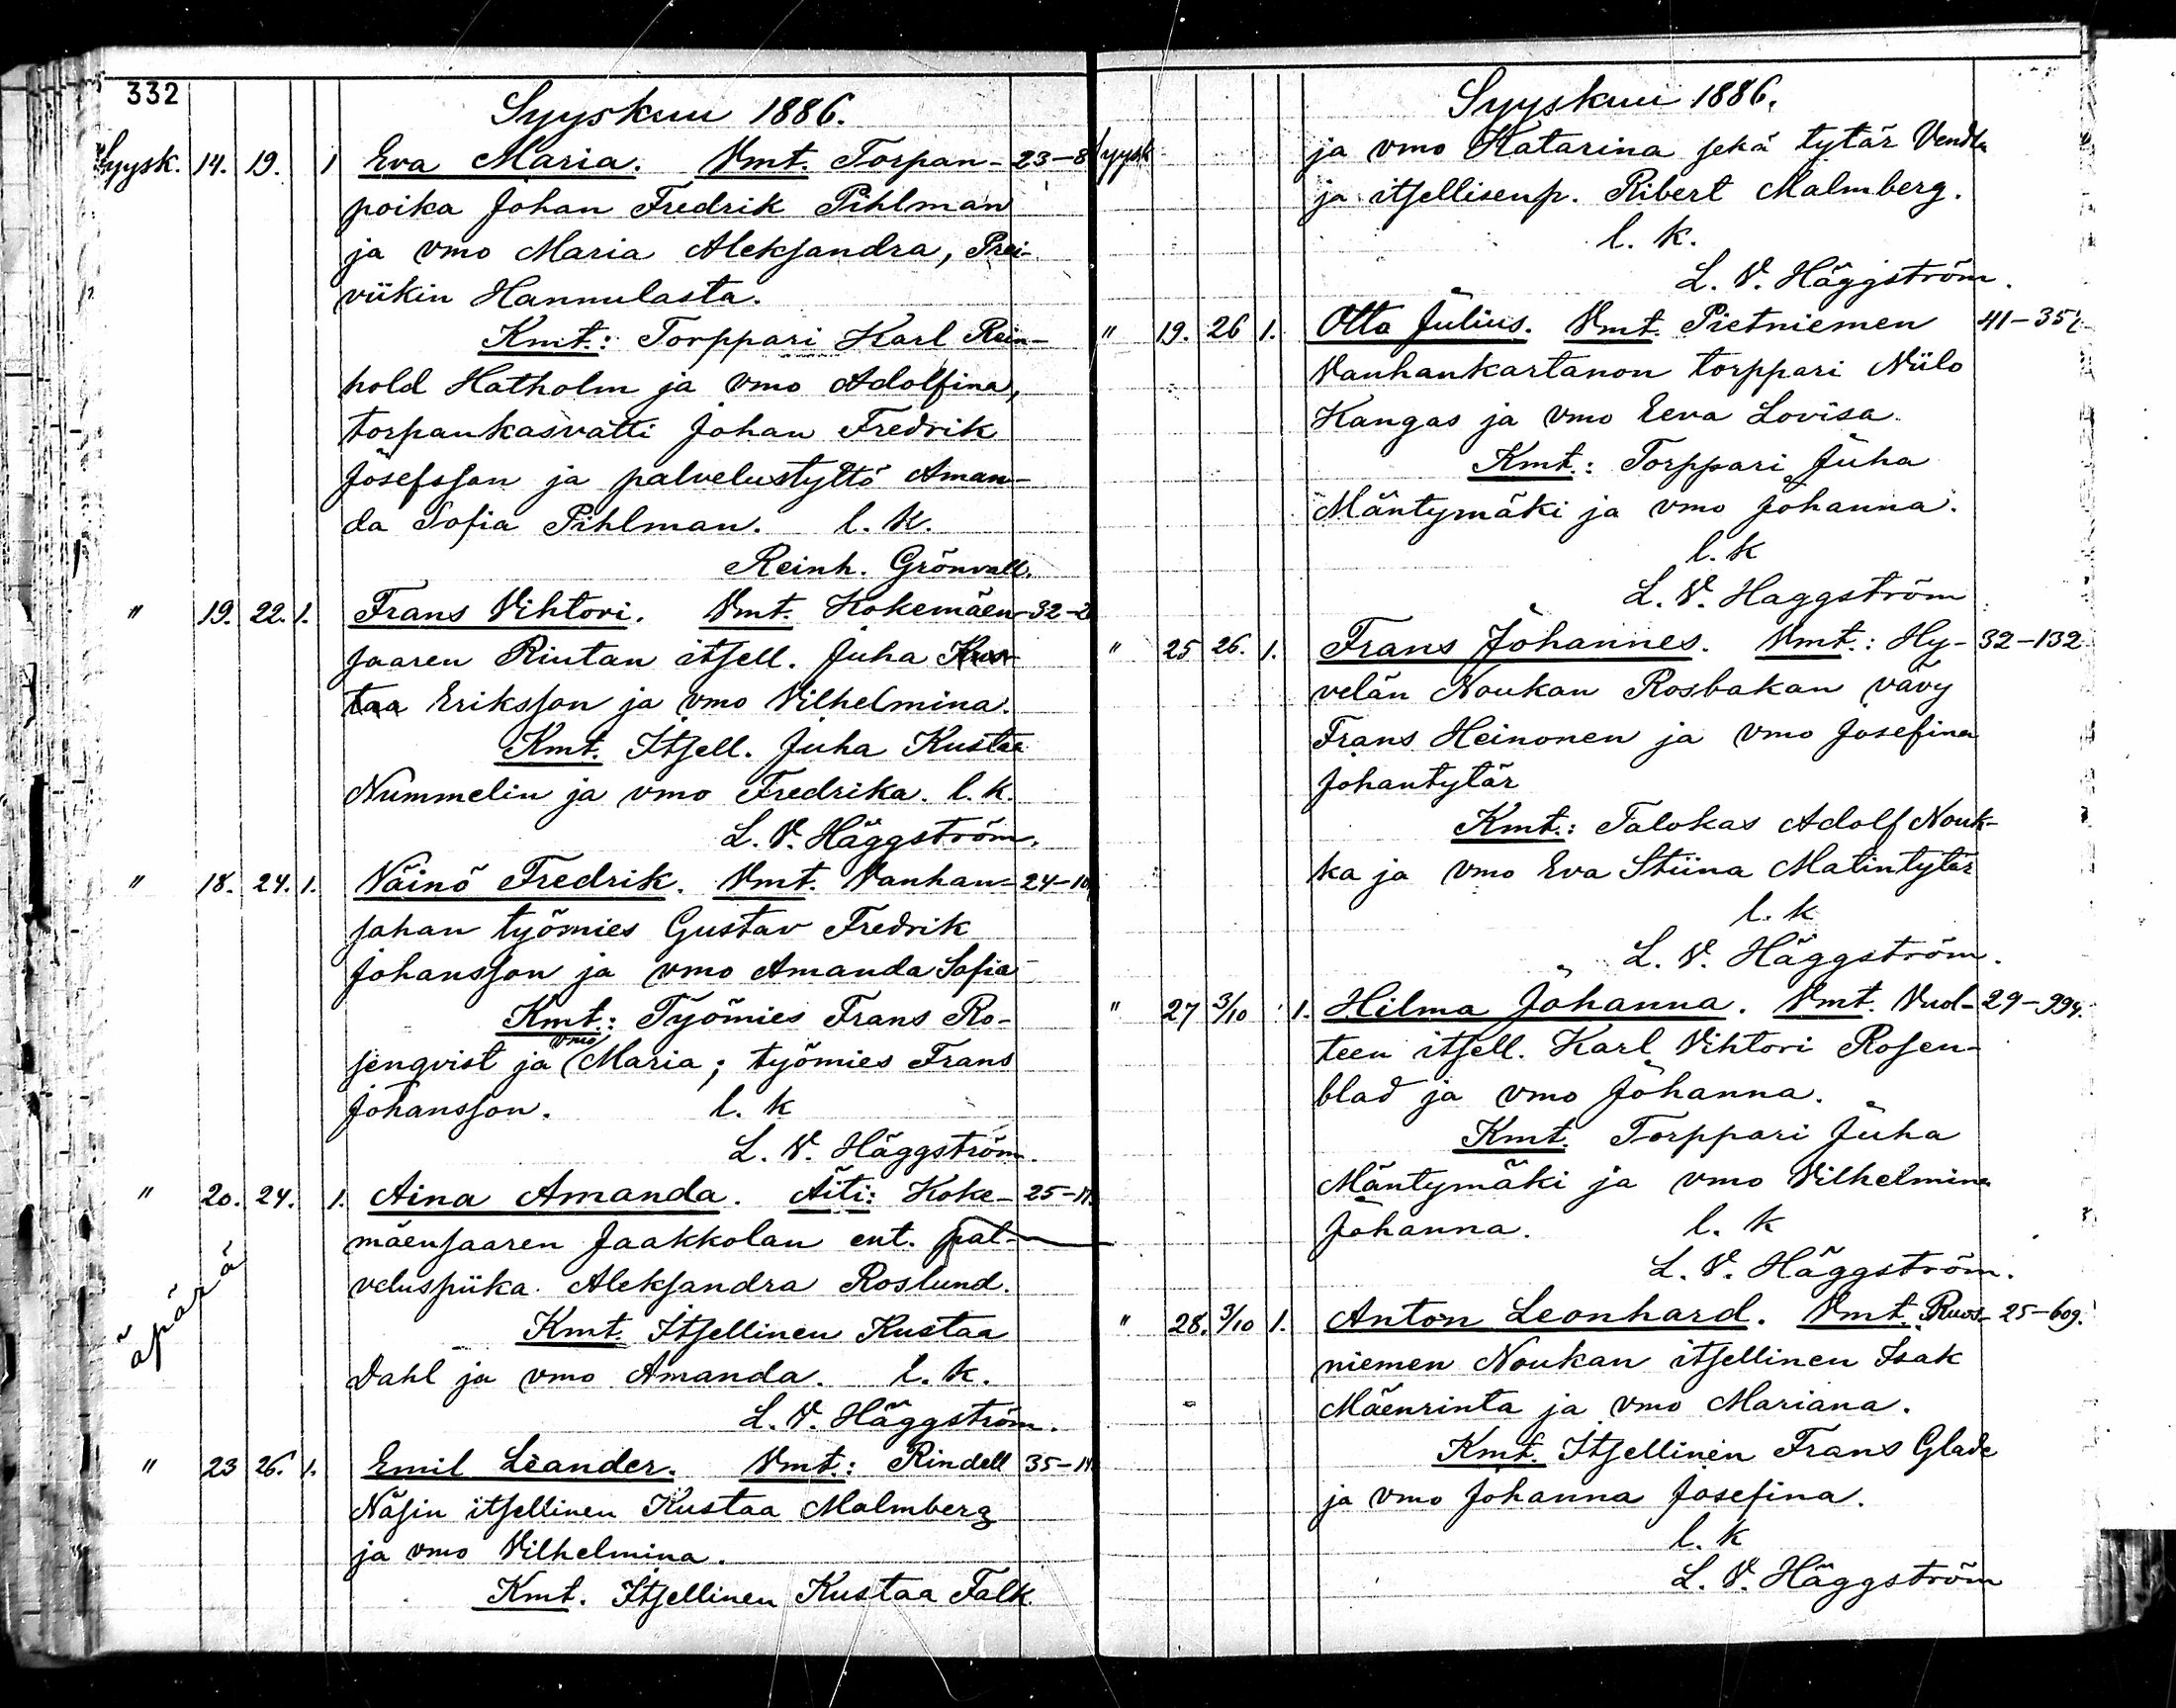 332
Syyskuu 1886.
Syysk. 14. 19. 1 Eva Maria. Vmt. Torpan- 23-8
poika Johan Fredrik Pihlman
ja vmo Maria Aleksandra, Prei-
viikin Hannulasta.
Kmt.: Torppari Karl Rein-
hold Hatholm ja vmo Adolfina,
torpankasvatti Johan Fredrik
Josefsson ja palvelustyttö Aman-
da Sofia Pihlman. l. k.
Reinh. Grönvall.
" 19. 22. 1. Frans Vihtori. Vmt. Kokemäen- 32-2
saaren Rintan itsell. Juha Kus-
taa Eriksson ja vmo Vilhelmina.
Kmt. Itsell. Juha Kustaa
Nummelin ja vmo Fredrika. l. k.
L. V. Häggström.
" 18. 24. 1. Väinö Fredrik. Vmt. Vanhan- 24-10
sahan työmies Gustav Fredrik
Johansson ja vmo Amanda Sofia
Kmt.: Työmies Frans Ro-
senqvist ja vmo Maria; työmies Frans
Johansson. l. k
L. V. Häggström.
" 20. 24. 1. Aina Amanda. Äiti: Koke- 25-11
mäensaaren Jaakkolan ent. pal-
veluspiika Aleksandra Roslund.
äpärä
Kmt. Itsellinen Kustaa
Dahl ja vmo Amanda. l. k.
L. V. Häggström.
" 23 26. 1. Emil Leander. Vmt.: Rindell 35-11
Näsin itsellinen Kustaa Malmberg
ja vmo Vilhelmina.
Kmt. Itsellinen Kustaa Falk
Syyskuu 1886.
Syysk ja vmo Katarina sekä tytär Vendla
ja itsellisenp. Ribert Malmberg.
l. k.
L. V. Häggström.
" 19. 26 1. Otto Julius. Vmt. Pietniemen 41-35
Vanhankartanon torppari Niilo
Kangas ja vmo Eeva Lovisa.
Kmt.: Torppari Juha
Mäntymäki ja vmo Johanna.
l. k
L. V. Haggström
" 25 26. 1. Frans Johannes. Vmt.: Hy- 32-132
velän Noukan Rosbakan vävy
Frans Heinonen ja vmo Josefina
Johantytär
Kmt.: Talokas Adolf Nouk-
ka ja vmo Eva Stiina Matintytär
l. k
L. V. Häggström.
" 27 3/10 1. Hilma Johanna. Vmt. Vuol- 29-994.
teen itsell. Karl Vihtori Rosen-
blad ja vmo Johanna.
Kmt. Torppari Juha
Mäntymäki ja vmo Vilhelmina
Johanna. l. k
L. V. Häggström.
" 28. 3/10 1. Anton Leonhard. Vmt. Ruos- 25-609.
niemen Noukan itsellinen Isak
Mäenrinta ja vmo Mariana.
Kmt. Itsellinen Frans Glade
ja vmo Johanna Josefina.
l. k
L. V. Häggström